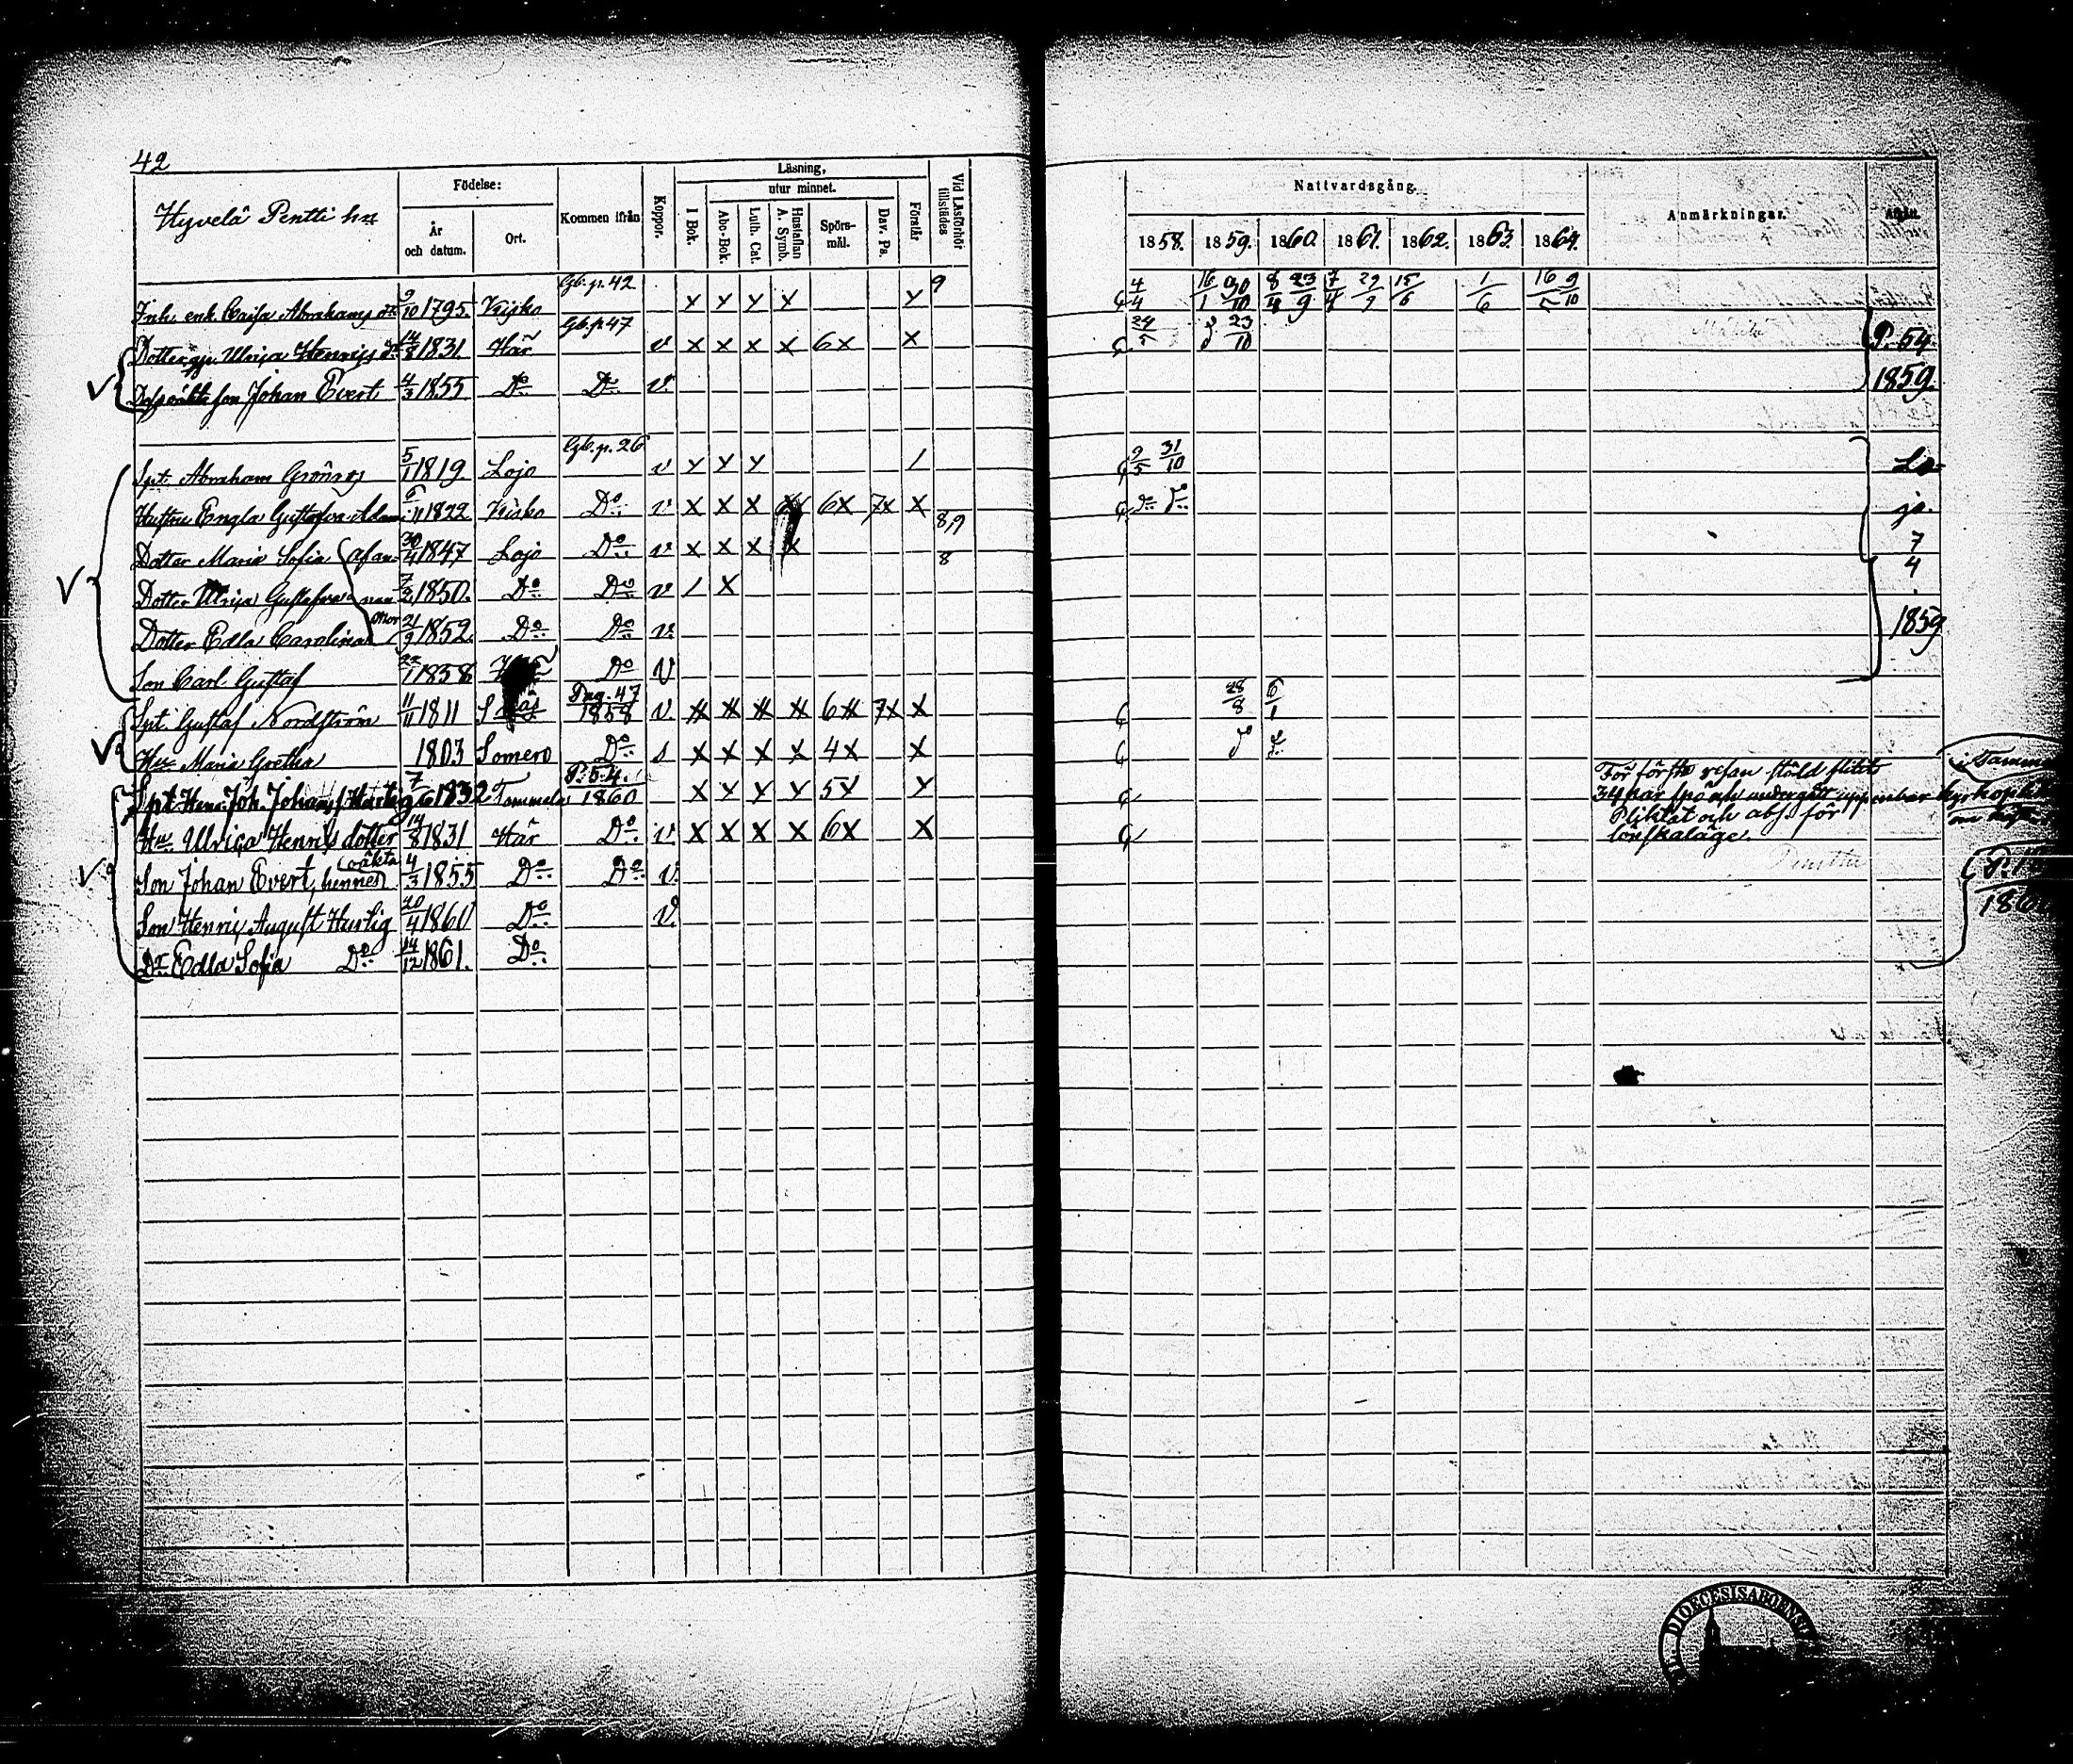 42
Hyvelä Pentti hn
Födelse:
År och datum.
Ort.
Kommen ifrån
Koppor.
Läsning,
utur minnet.
I Bok.
Abc-Bok.
Luth. Cat.
Hustaflan A. Symb.
Spörsmål.
Dav. Ps.
Förstår
Vid Läsförhör tillstädes
Nattvardsgång.
1858. 1859. 1860. 1861. 1862. 1863. 1864.
Anmärkningar.
Afgått.
Inh. enk. Caisa Abrahams dr 9/10 1795. Gb. p. 42 x x x x x 9 4/4 16/1 30/10 8/4 23/9 7/4 29/9 15/6 1/6 16/5 9/10
Dotter Ulrica Henrics dr 14/8 1831 Här Gb. p. 47 v x x x x 6x x 24/5 23/10 P. 54
son Johan Evert 4/3 1855 Do Do v. 1859.
Spt. Abraham Grönroos 5/1 1819. Lojo Gb. p. 26 v x x x / 9/5 31/10 Lo-
Hustru Engla Gustafva 6/11 1822 Do v x x x 6x 7x x 8,9 Do Do jo.
Dotter Maria Sofia 30/4 1847 Lojo Do v x x x x 8 7/4
Dotter Ulrica Gustafva 7/3 1850. Do Do v / x
Dotter Edla Carolina 21/9 1852. Do Do v. 1859
Son Carl Gustaf 1858 Do v
Spt. Gustaf Nordström 11/11 1811 Pag. 47 1858 v. x x x x 6x 7x x 28/8 6/1
Hu Maria Gretha 1803 Somero Do s x x x x 4x x
Spt Hen. Joh. Johans. Hurtig 7/6 1832 Tammela P. 54. 1860 x x x x 5x x
För första resan
Hu Ulrica Henrics dotter 14/8 1831 Här Do v. x x x x 6x x
Pliktat och abs. för
lönskaläge.
Son Johan Evert, hennes oäkta 4/3 1855 Do Do v.
Son Henric August Hurtig 20/4 1860 Do v.
Dr Edla Sofia Do 14/12 1861. Do
DIOECESIS ABOENSIS